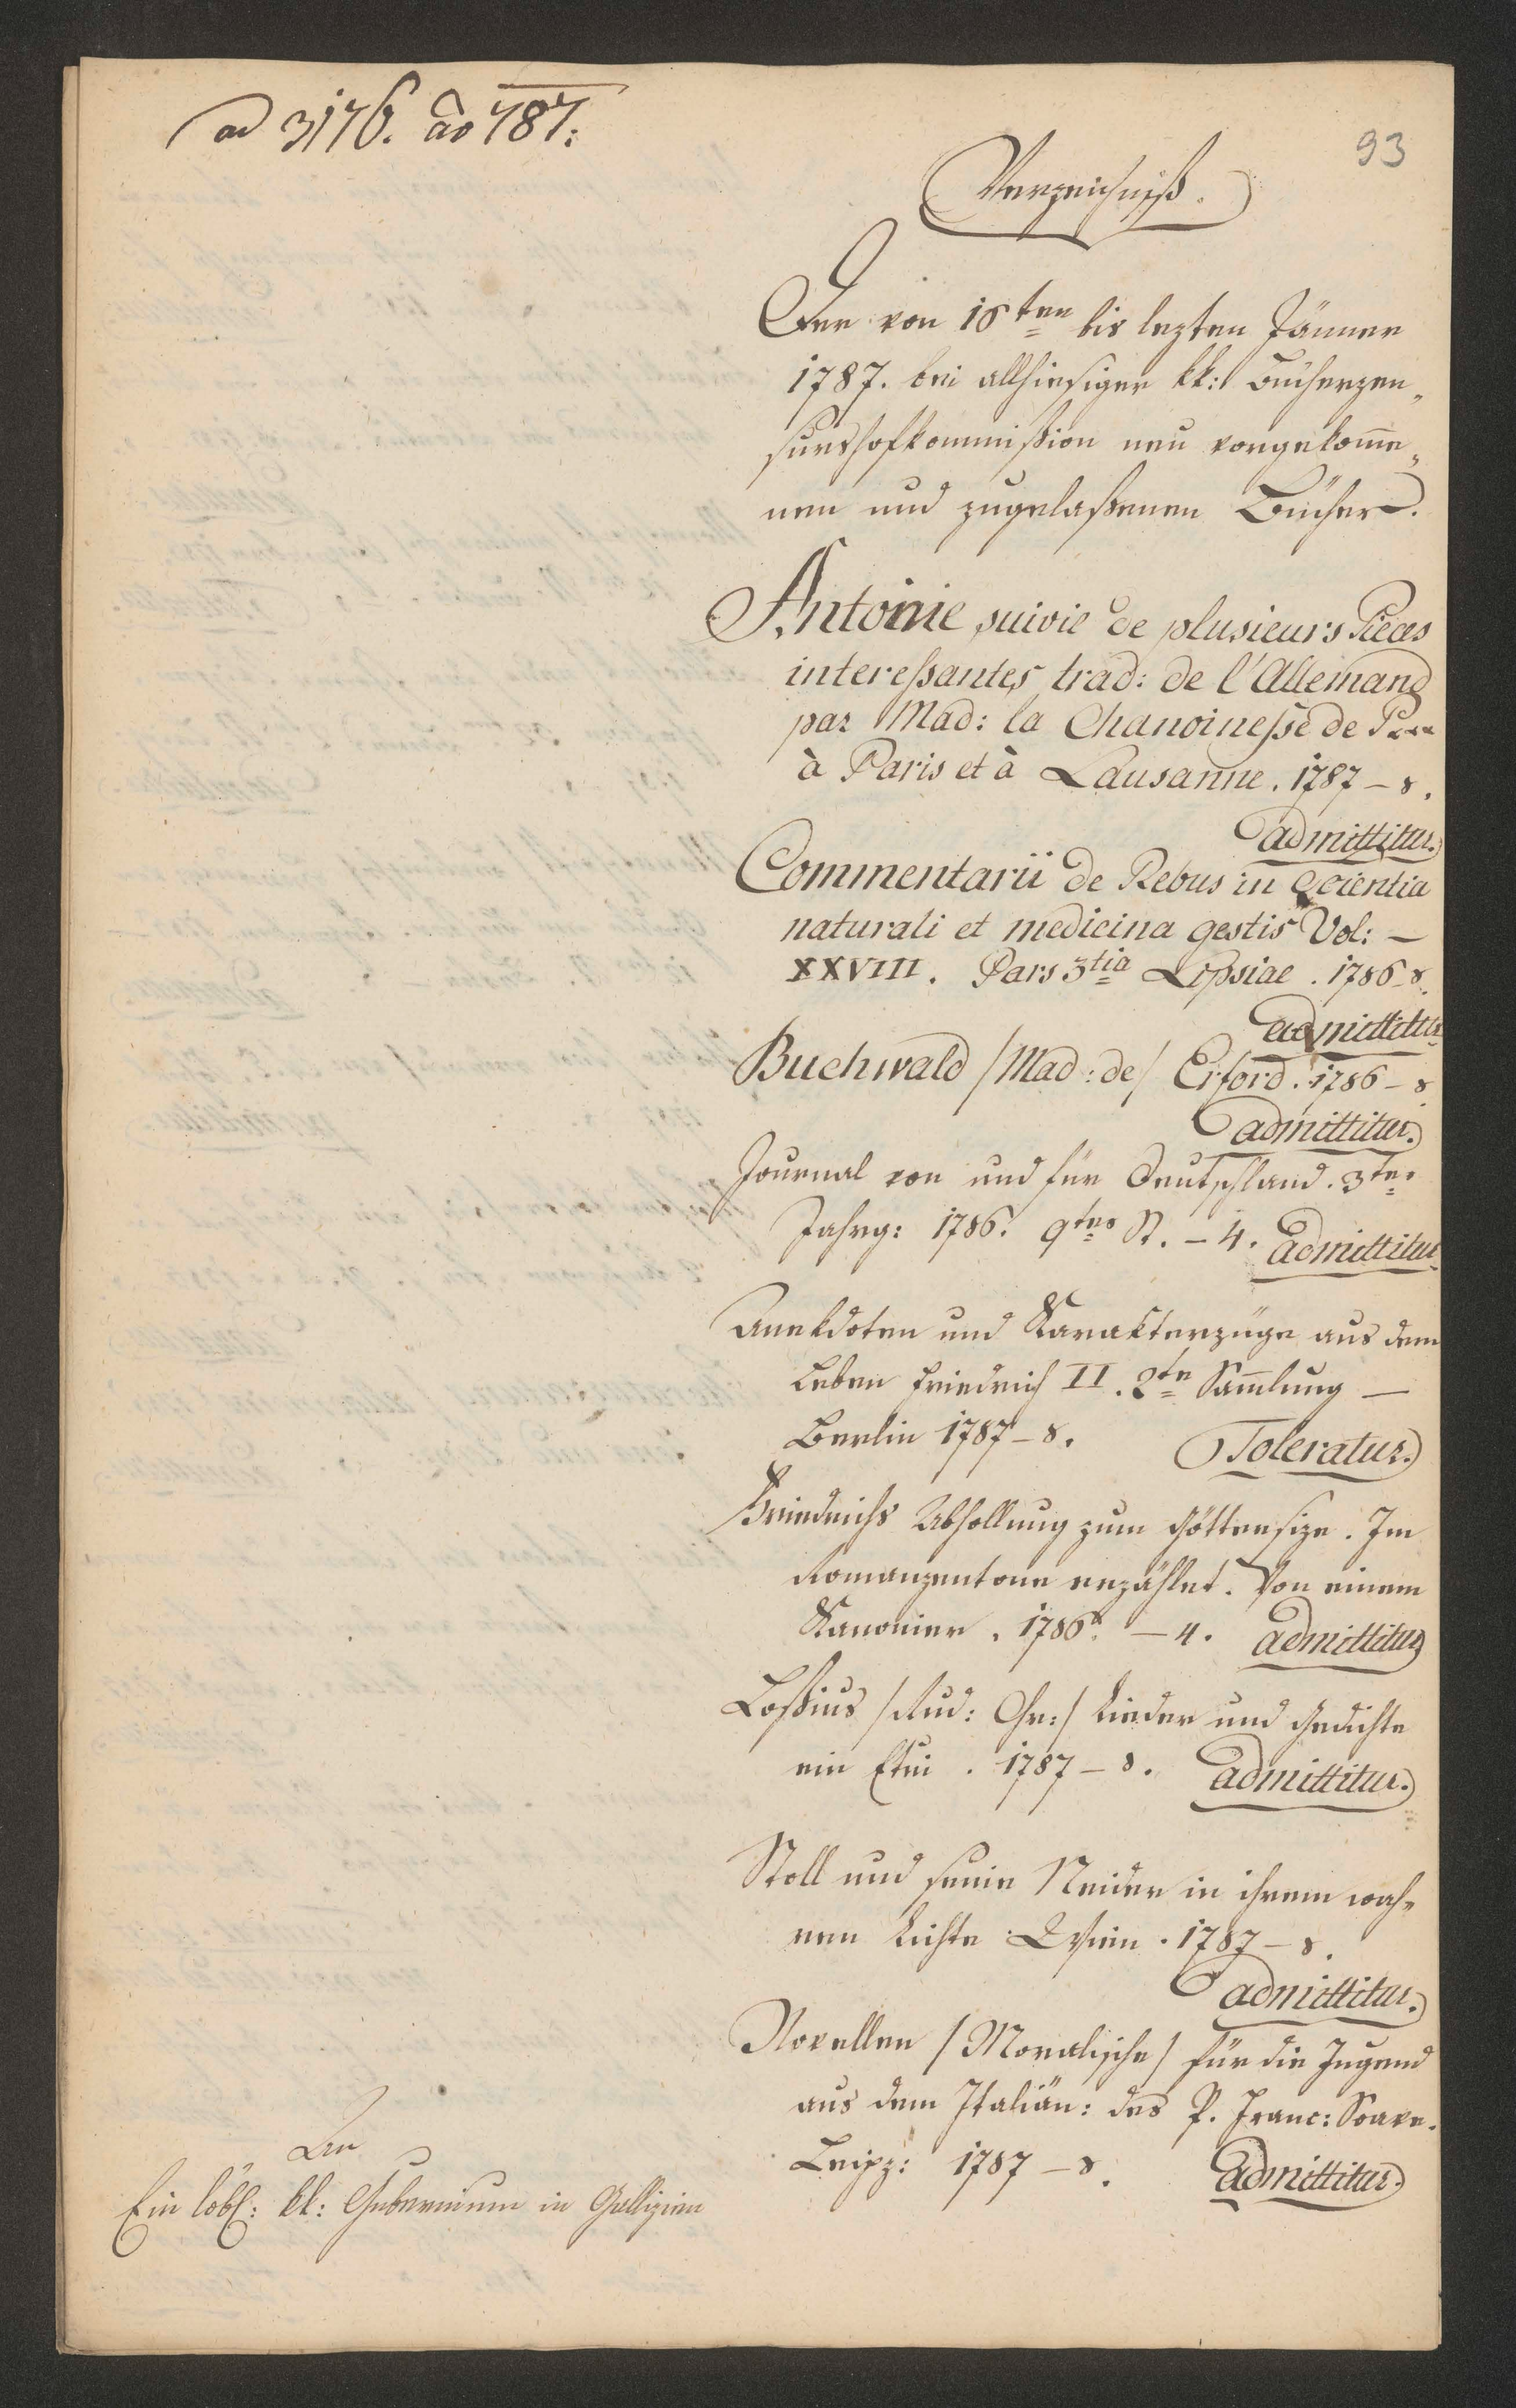 ad 3176. ao 787.
93
Verzeichniß.
Der von 18ten bis lezten Jänner
1787. bei allhiesiger kk: Bücherzen„
surshofkommißion neu vorgekom̅e„
nen und zugelaßenen Bücher.
Antonie suivie de plusieurs Pieces
intereßantes, trad: de l'Allemand
par Mad: la Chanoineße de P...
à Paris et à Lausanne. 1787 – 8.
admittitur.
Commentarii de Rebus in Scientia
naturali et medicina gestis Vol: –
XXVIII. Pars 3tia Lipsiae. 1786 – 8.
admittitur
Buchwald /Mad: de/ Erford. 1786 – 8.
admittitur.
Journal von und für Deutschland. 3ter
Jahrg: 1786. 9tes St. – 4. admittitur
Anekdoten und Karakterzüge aus dem
Leben Friedrich II. 2te Sam̅lung –
Berlin 1787 – 8. Toleratur.
Friedrichs Abhollung zum Göttersize. Im
Romanzentone erzählet. Von einem
Kanonier. 1786. – 4. admittitur
Loßius /Rud: Chr:/ Lieder und Gedichte
ein Etui. 1787 – 8. admittitur.
Stoll und seine Neider in ihrem wah„
ren Lichte Wien. 1787 – 8.
admittitur.
Novellen /Moralische/ für die Jugend
aus dem Italiän: des P. Franc: Soave.
Leipz: 1787 – 8. admittitur.
An
Ein löbl: kk: Gubernium in Gallizien